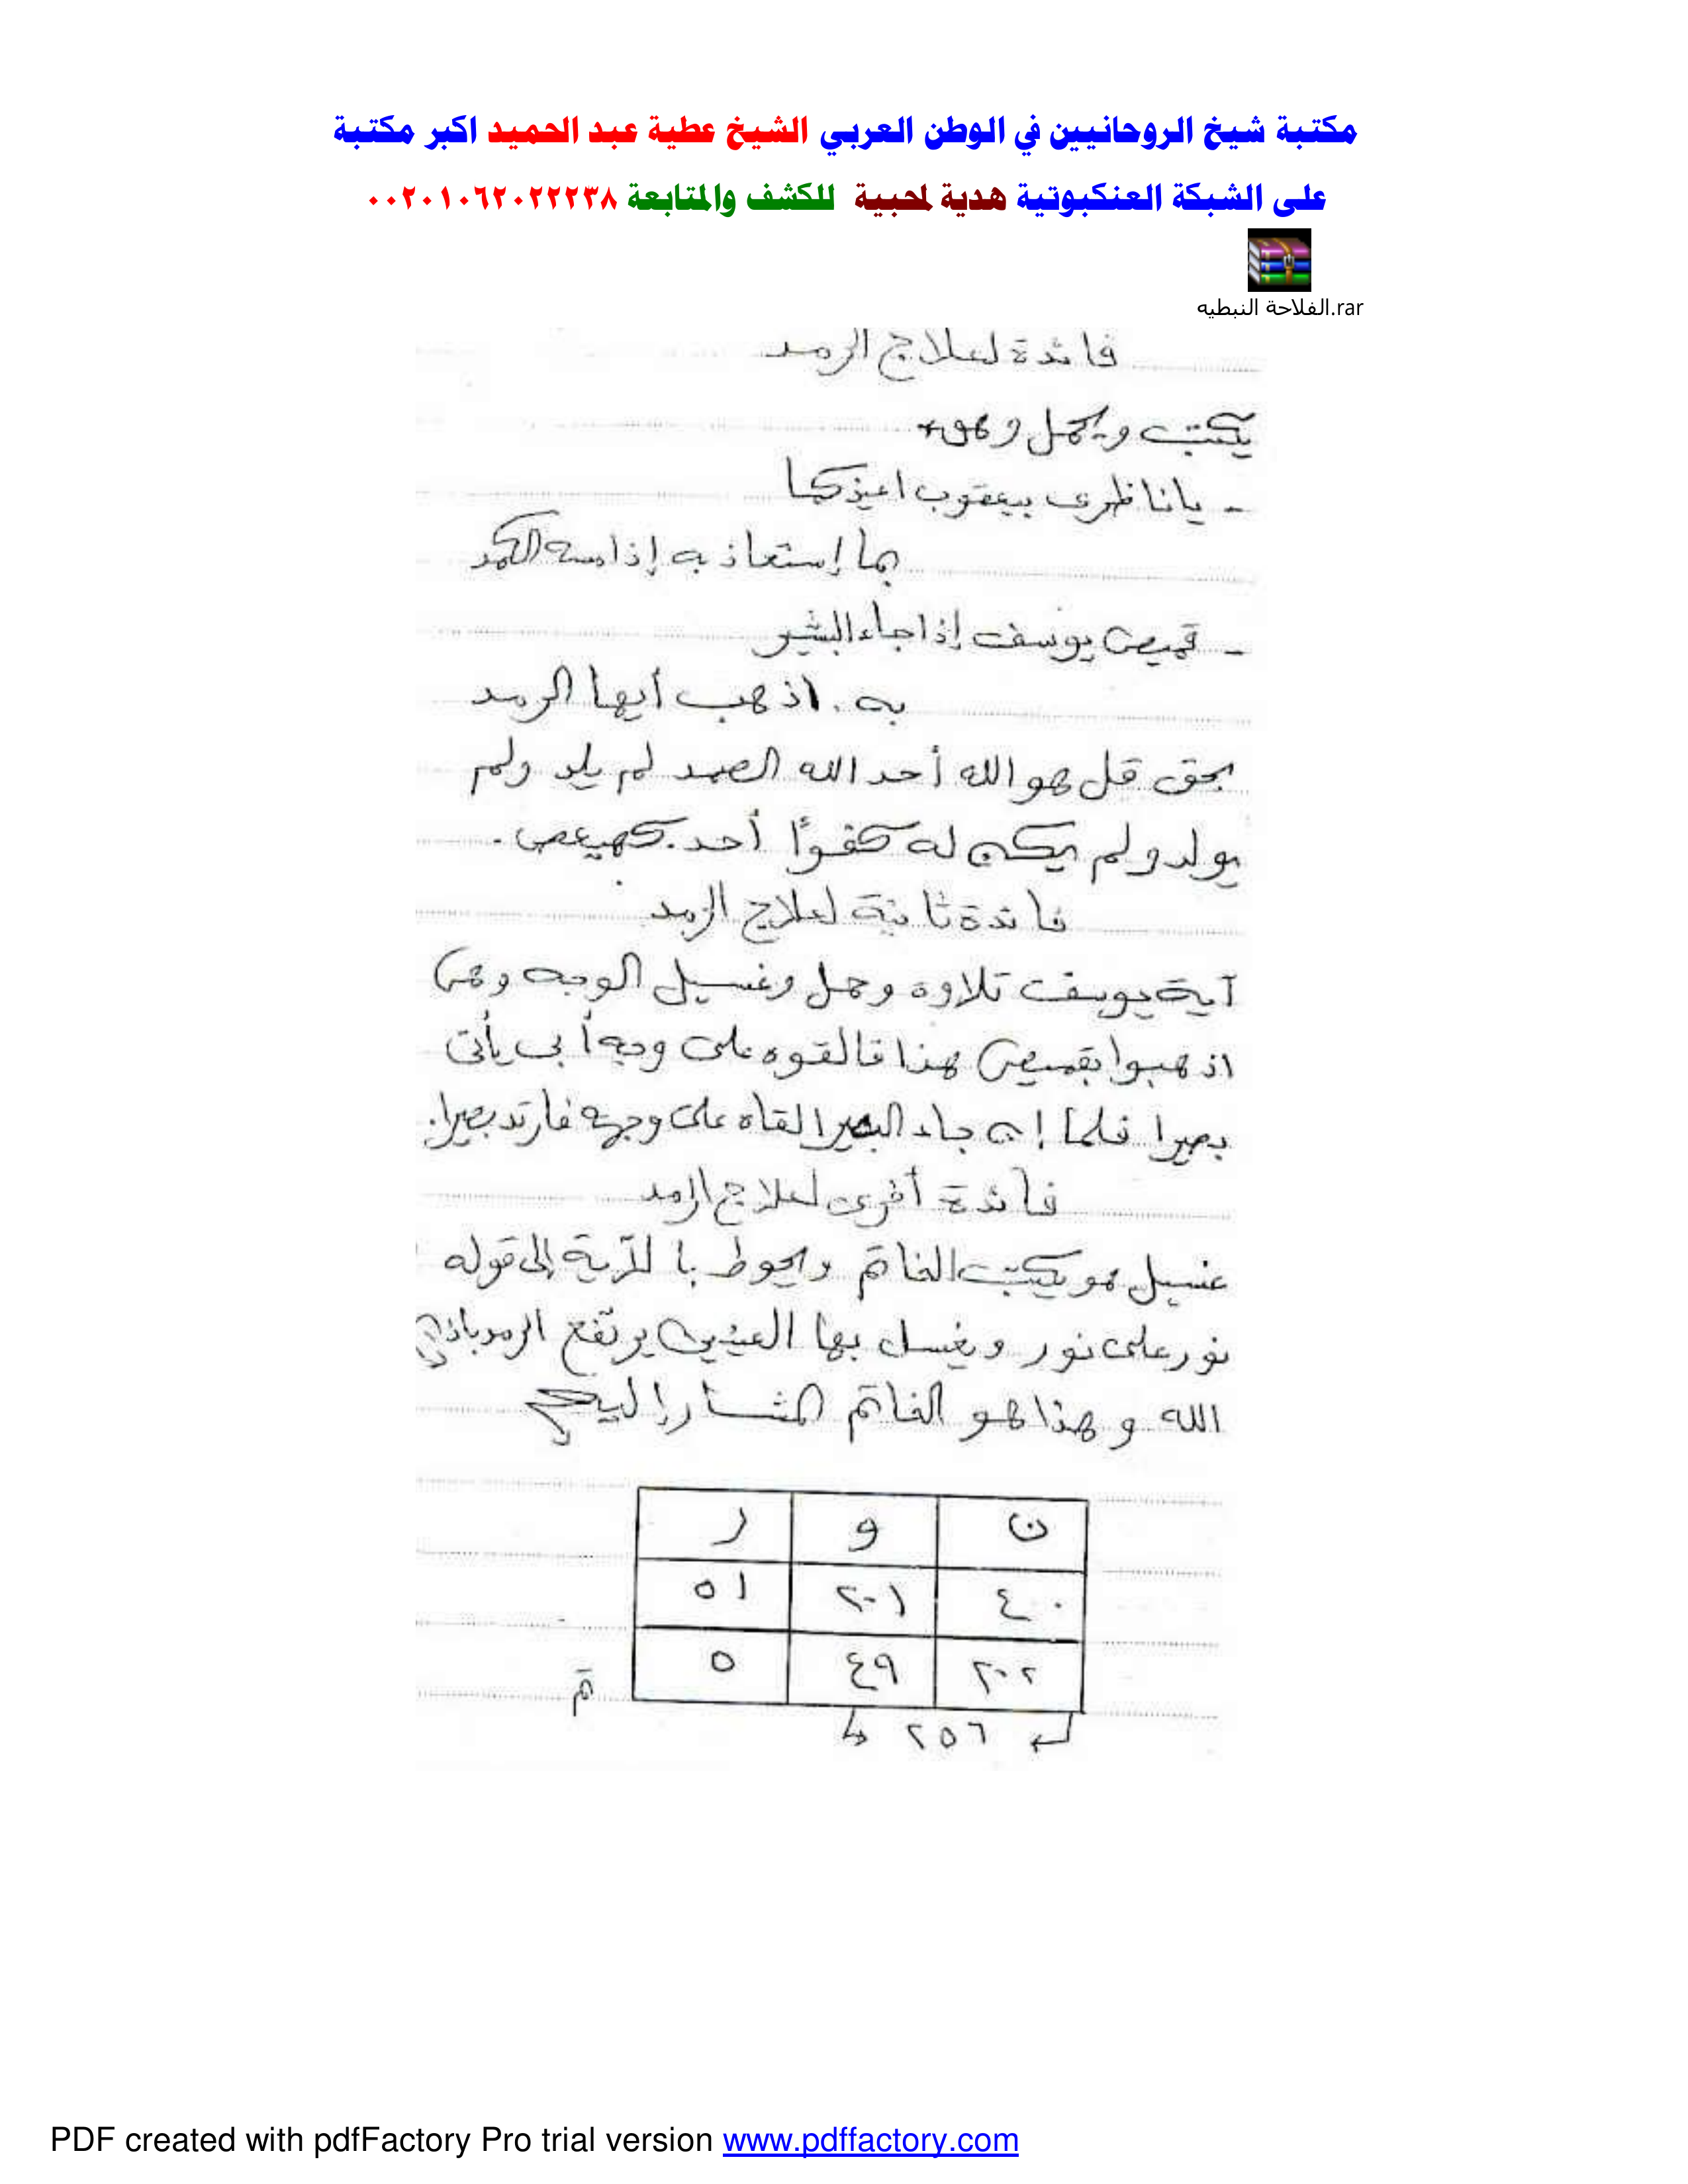 مكتبة شيخ الروحانيين في الوطن العربي الشيخ عطية عبد الحميد اكبر مكتبة
على الشبكة العنكبوتية هدية لمحبية للكشف والمتابعة ٠٠٢٠١٠٦٢٠٢٢٢٣٨
الفلاحة النبطيه.rar
فائدة لعلاج الرمد
يكتب ويحمل وهو
- يا ناظرى بيعقوب اعيذكما
بما إستعاذ به إذا مسه الكمد
- قميص يوسف إذا جاء البشير
به. اذهب أيها الرمد
بحق قل هو الله أحد الله الصمد لم يلد ولم
يولد ولم يكن له كفوًا أحد. كهيعص.
فائدة ثانية لعلاج الرمد
آية يوسف تلاوة وحمل وغسيل الوجه وهى
اذهبوا بقميصى هذا فالقوه على وجه أبى يأتى
بصيرا فلما إن جاء البشير القاه على وجهه فارتد بصيرا.
فائدة أخرى لعلاج الرمد
غسيل هو يكتب الخاتم ويحوط با لآية إلى قوله
نور على نور ويغسل بها العينين يرتفع الرمد باذن
الله وهذا هو الخاتم المشار إليه
ن و ر
٤٠ ٢٠١ ٥١
٢٠٢ ٤٩ ٥
تم
٢٥٦
PDF created with pdfFactory Pro trial version www.pdffactory.com